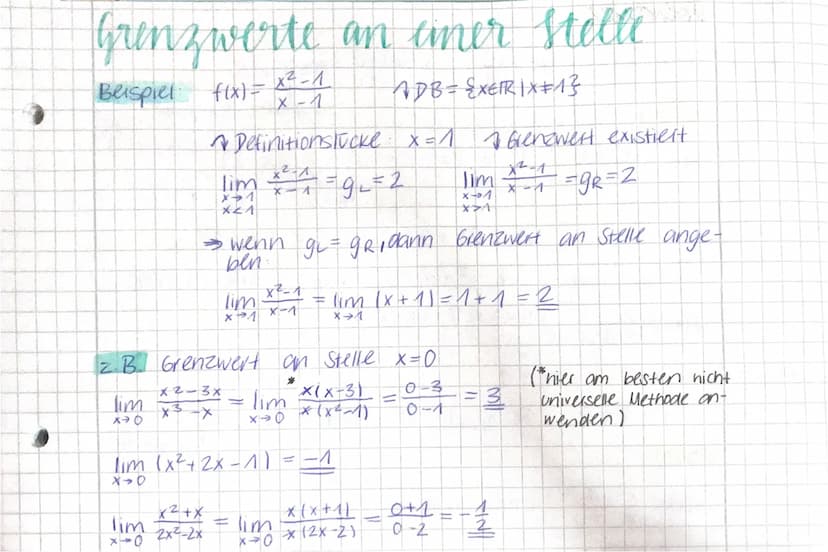 Grenzwerte an einer Stelle
Beispiel: f(x) = (x² - 1)/(x - 1) ↴DB = {x∈ℝ | x ≠ 1}
↴Definitionslücke: x = 1 ↴Grenzwert existiert
lim x→1 x<1 (x²-1)/(x-1) = g_L = 2 lim x→1 x>1 (x²-1)/(x-1) = g_R = 2
⇒ wenn g_L = g_R, dann Grenzwert an Stelle ange-
ben:
lim x→1 (x²-1)/(x-1) = lim x→1 (x+1) = 1+1 = 2
z.B. Grenzwert an Stelle x=0
lim x→0 (x²-3x)/(x³-x) = lim x→0 * x(x-3)/x(x²-1) = (0-3)/(0-1) = 3
(*hier am besten nicht
universelle Methode an-
wenden)
lim x→0 (x²+2x-1) = -1
lim x→0 (x²+x)/(2x²-2x) = lim x→0 x(x+1)/x(2x-2) = (0+1)/(0-2) = -1/2